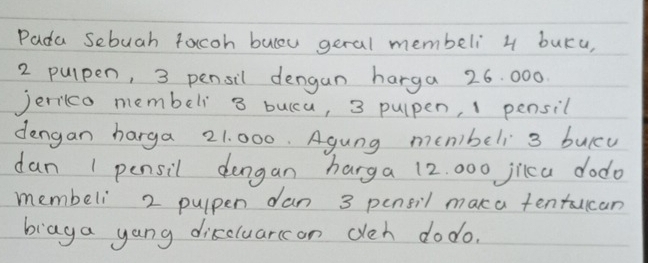 Pada Sebuah tokoh buku geral membeli 4 buku,
2 pulpen, 3 pensil dengan harga 26.000.
jeriko membeli 3 buku, 3 pulpen, 1 pensil
dengan harga 21.000. Agung membeli 3 buku
dan 1 pensil dengan harga 12.000 jika dodo
membeli 2 pulpen dan 3 pensil maka tentukan
biaya yang dikeluarkan oleh dodo.